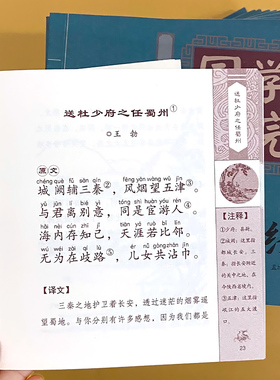 国学
送杜少府之任蜀州①
◎王 勃
原文
chéng què fǔ sān qín fēng yān wàng wǔ jīn
城阙辅三秦②，风烟望五津③。
yǔ jūn lí bié yì tóng shì huàn yóu rén
与君离别意，同是宦游人。
hǎi nèi cún zhī jǐ tiān yá ruò bǐ lín
海内存知己，天涯若比邻。
wú wéi zài qí lù ér nǚ gòng zhān jīn
无为在歧路，儿女共沾巾。
【译文】
三秦之地护卫着长安，透过迷茫的烟雾遥
望蜀地。与你分别有许多感想，因为我们都是
送杜少府之任蜀州
【注释】
①少府：县尉。
②城阙：这里指
都城长安。三
秦：指长安附近
的关中之地，在
今陕西省境内。
③五津：这里指
岷江的五大渡
口。
23